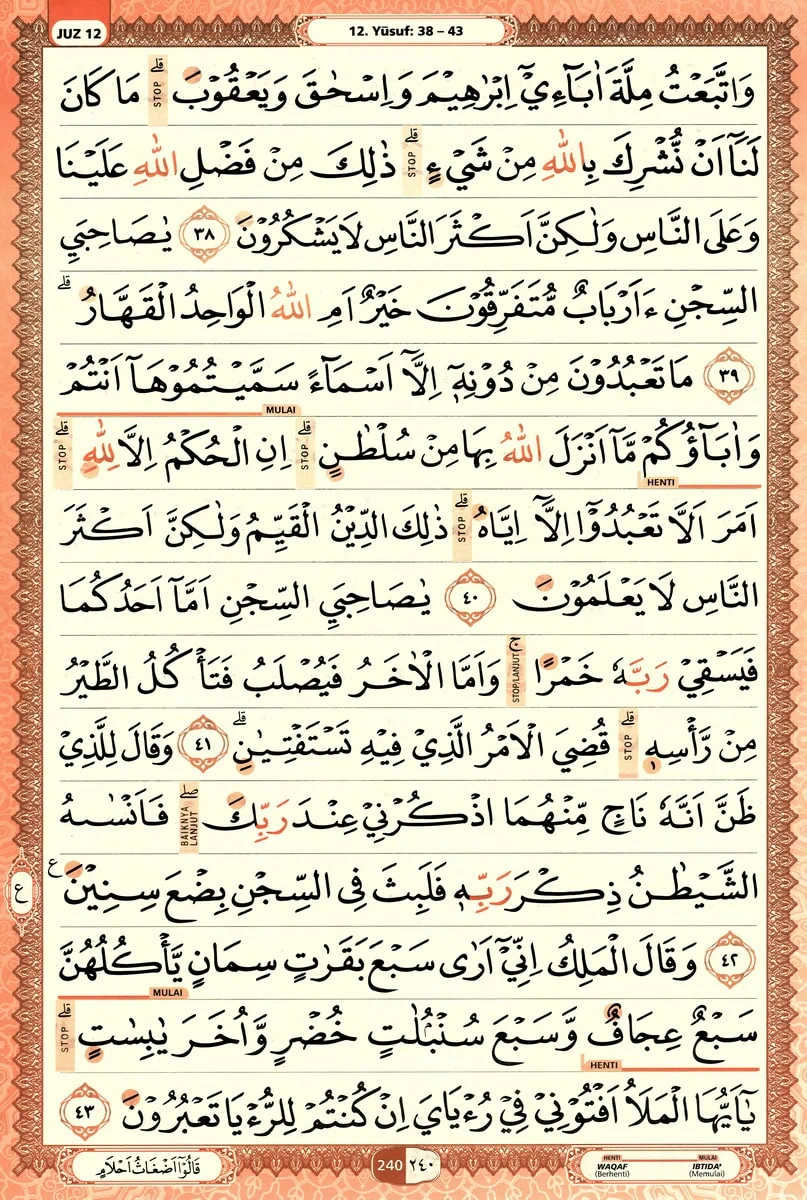 JUZ 12
12. Yūsuf: 38 – 43
وَاتَّبَعْتُ مِلَّةَ اٰبَاۤءِيْٓ اِبْرٰهِيْمَ وَاِسْحٰقَ وَيَعْقُوْبَۗ STOP مَا كَانَ
لَنَآ اَنْ نُّشْرِكَ بِاللّٰهِ مِنْ شَيْءٍۗ STOP ذٰلِكَ مِنْ فَضْلِ اللّٰهِ عَلَيْنَا
وَعَلَى النَّاسِ وَلٰكِنَّ اَكْثَرَ النَّاسِ لَا يَشْكُرُوْنَ ٣٨ يٰصَاحِبَيِ
السِّجْنِ ءَاَرْبَابٌ مُّتَفَرِّقُوْنَ خَيْرٌ اَمِ اللّٰهُ الْوَاحِدُ الْقَهَّارُۗ
٣٩ مَا تَعْبُدُوْنَ مِنْ دُوْنِهٖٓ اِلَّآ اَسْمَاۤءً سَمَّيْتُمُوْهَآ اَنْتُمْ
MULAI
وَاٰبَاۤؤُكُمْ مَّآ اَنْزَلَ اللّٰهُ بِهَا مِنْ سُلْطٰنٍۗ STOP اِنِ الْحُكْمُ اِلَّا لِلّٰهِۗ STOP
HENTI
اَمَرَ اَلَّا تَعْبُدُوْٓا اِلَّآ اِيَّاهُۗ STOP ذٰلِكَ الدِّيْنُ الْقَيِّمُ وَلٰكِنَّ اَكْثَرَ
النَّاسِ لَا يَعْلَمُوْنَ ٤٠ يٰصَاحِبَيِ السِّجْنِ اَمَّآ اَحَدُكُمَا
فَيَسْقِيْ رَبَّهٗ خَمْرًاۚ STOP/LANJUT وَاَمَّا الْاٰخَرُ فَيُصْلَبُ فَتَأْكُلُ الطَّيْرُ
مِنْ رَّأْسِهٖۗ STOP قُضِيَ الْاَمْرُ الَّذِيْ فِيْهِ تَسْتَفْتِيٰنِۗ ٤١ وَقَالَ لِلَّذِيْ
ظَنَّ اَنَّهٗ نَاجٍ مِّنْهُمَا اذْكُرْنِيْ عِنْدَ رَبِّكَۖ BAIKNYA LANJUT فَاَنْسٰىهُ
الشَّيْطٰنُ ذِكْرَ رَبِّهٖ فَلَبِثَ فِى السِّجْنِ بِضْعَ سِنِيْنَ ࣖ
ع
٤٢ وَقَالَ الْمَلِكُ اِنِّيْٓ اَرٰى سَبْعَ بَقَرٰتٍ سِمَانٍ يَّأْكُلُهُنَّ
MULAI
سَبْعٌ عِجَافٌ وَّسَبْعَ سُنْۢبُلٰتٍ خُضْرٍ وَّاُخَرَ يٰبِسٰتٍۗ STOP
HENTI
يٰٓاَيُّهَا الْمَلَاُ اَفْتُوْنِيْ فِيْ رُءْيَايَ اِنْ كُنْتُمْ لِلرُّءْيَا تَعْبُرُوْنَ ٤٣
قَالُوْٓا اَضْغَاثُ اَحْلَامٍ
240 ٢٤٠
HENTI MULAI
WAQAF IBTIDA'
(Berhenti) (Memulai)